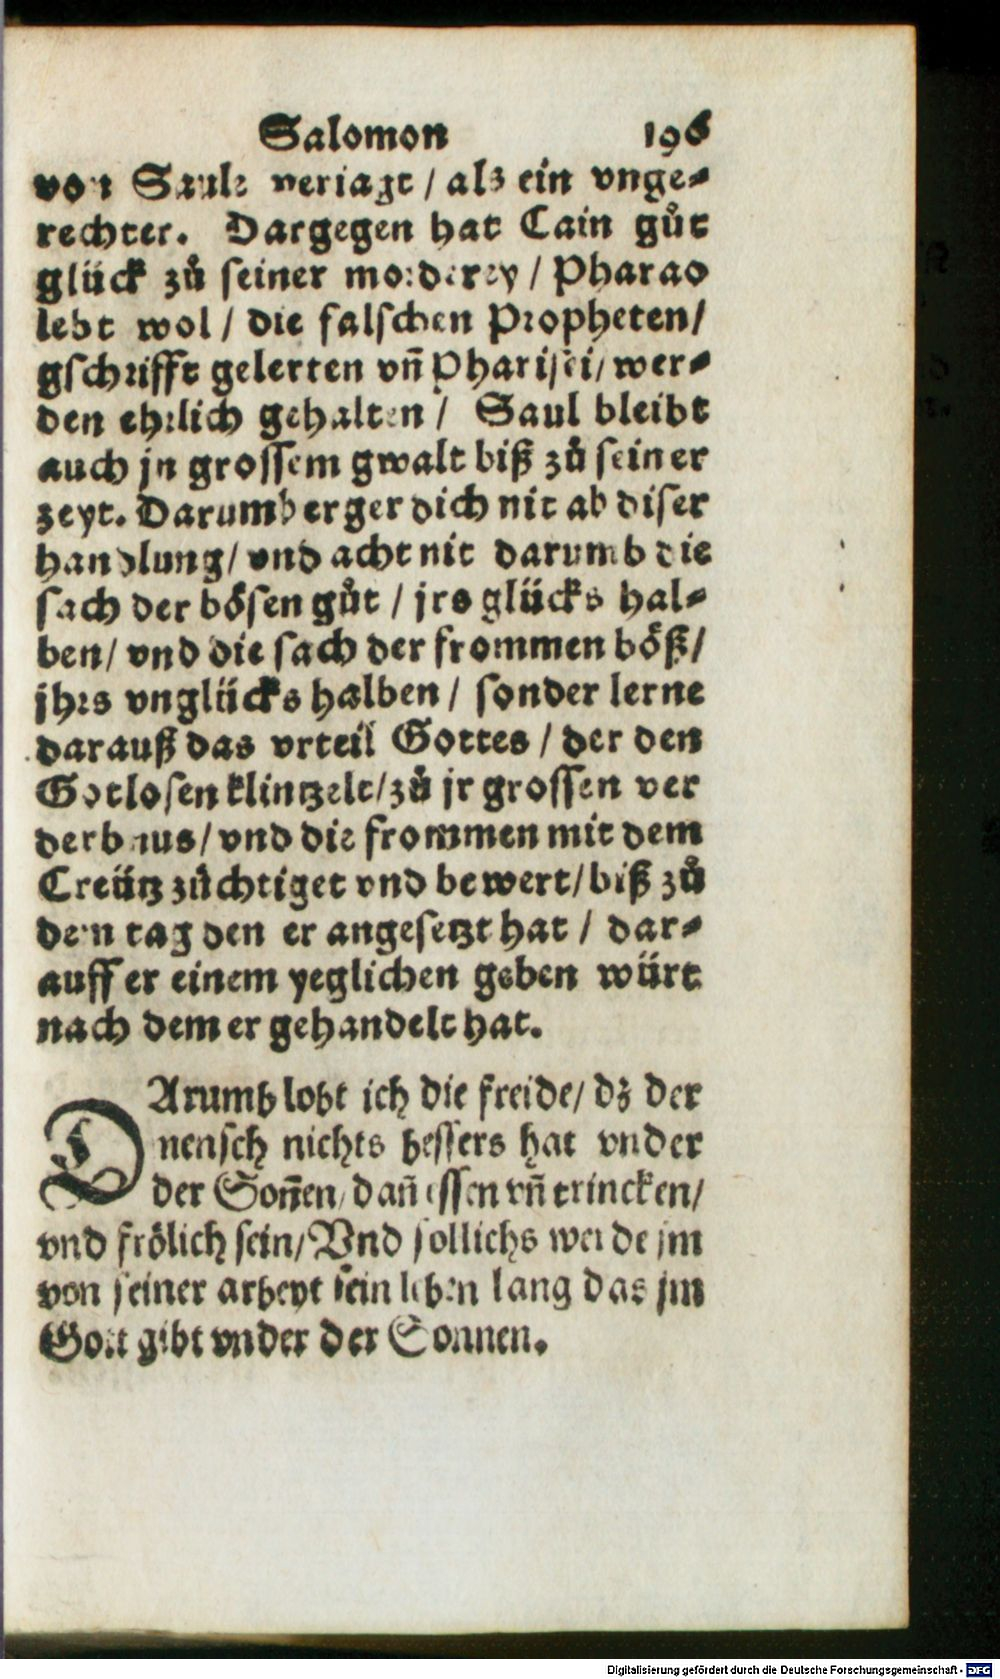 Salomon 196
von Saule veriagt / als ein vnge⸗
rechter. Dargegen hat Cain gůt
glück zů seiner morderey / Pharao
lebt wol / die falschen Propheten /
gschrifft gelerten vñ Pharisei / wer⸗
den ehrlich gehalten / Saul bleibt
auch jn grossem gwalt biß zů seiner
zeyt. Darumb erger dich nit ab diser
handlung / vnd acht nit darumb die
sach der bösen gůt / jrs glücks hal⸗
ben / vnd die sach der frommen böß /
jhrs vnglücks halben / sonder lerne
darauß das vrteil Gottes / der den
Gotlosen klintzelt / zů jr grossen ver
derbnus / vnd die frommen mit dem
Creütz züchtiget vnd bewert / biß zů
dem tag den er angesetzt hat / dar⸗
auff er einem yeglichen geben würt
nach dem er gehandelt hat.
DArumb lobt ich die freide / dz der
mensch nichts bessers hat vnder
der Soñen / dañ essen vñ trincken /
vnd frölich sein / Vnd sollichs werde jm
von seiner arbeyt sein leben lang das jm
Gott gibt vnder der Sonnen.
Digitalisierung gefördert durch die Deutsche Forschungsgemeinschaft - DFG